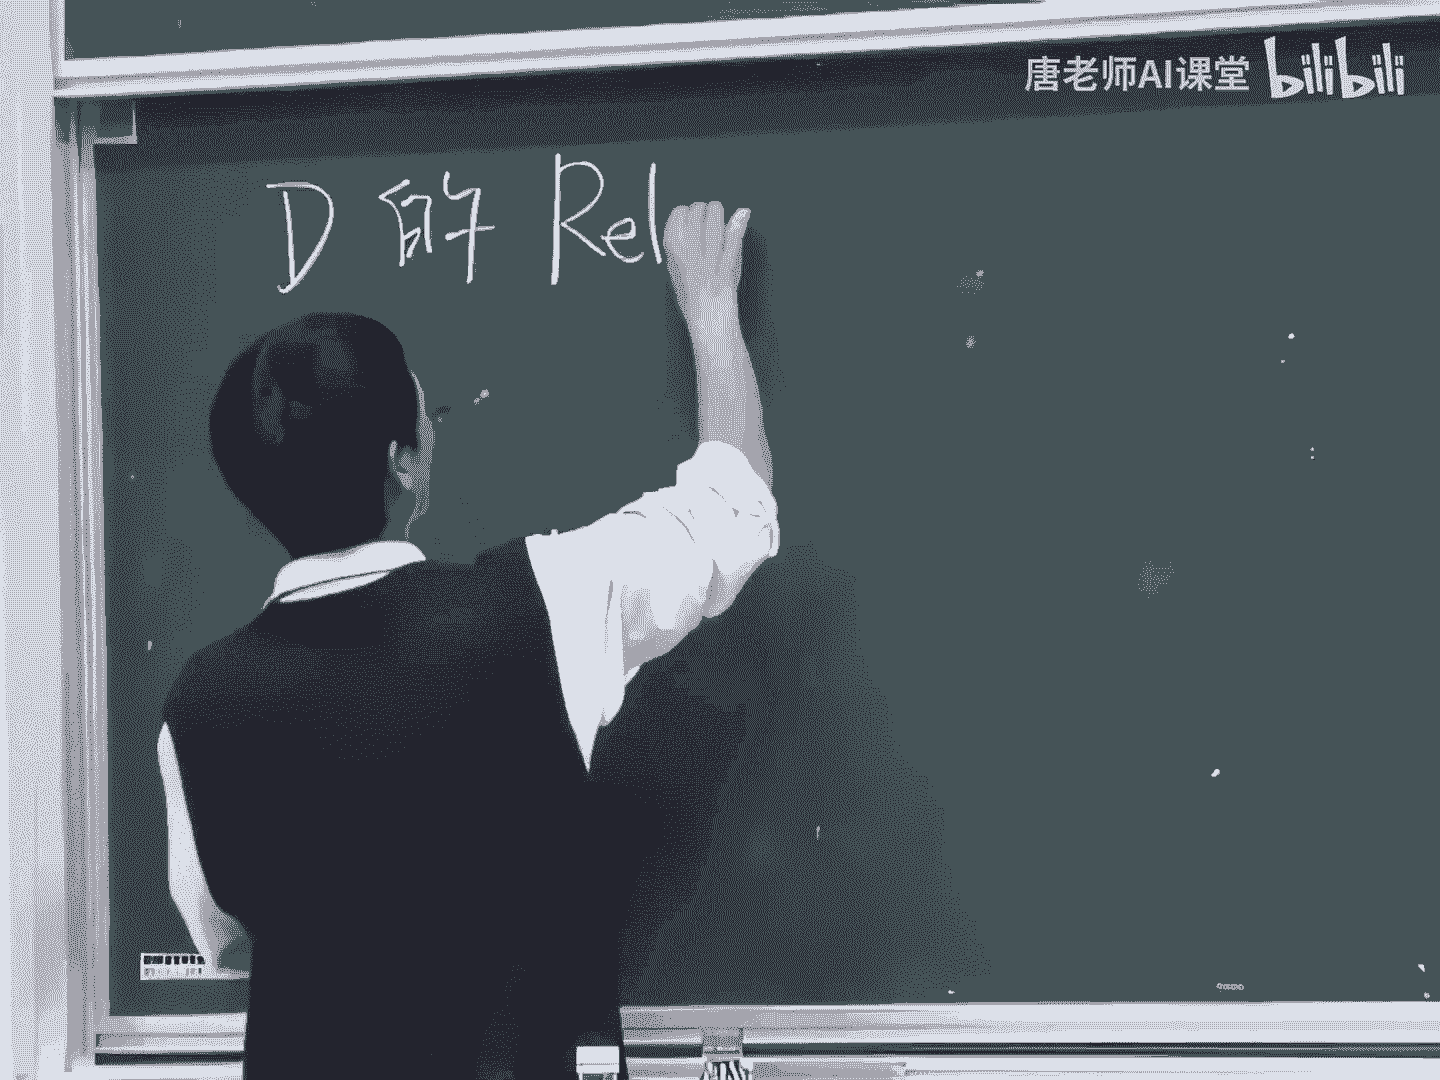 唐老师AI课堂 bilibili
D 的 Rel